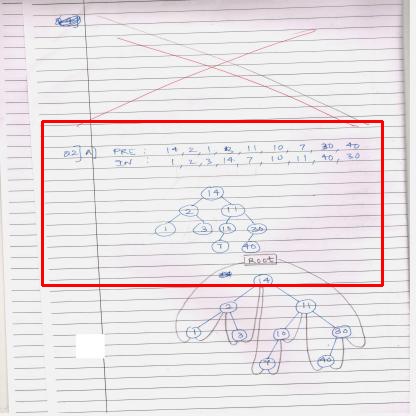 Q2] A] PRE : 14, 2, 1, 3, 11, 10, 7, 30, 40
IN : 1, 2, 3, 14, 7, 10, 11, 40, 30
14
2 11
1 3 10 30
7 40
Root
14
2 11
1 3 10 30
7 40